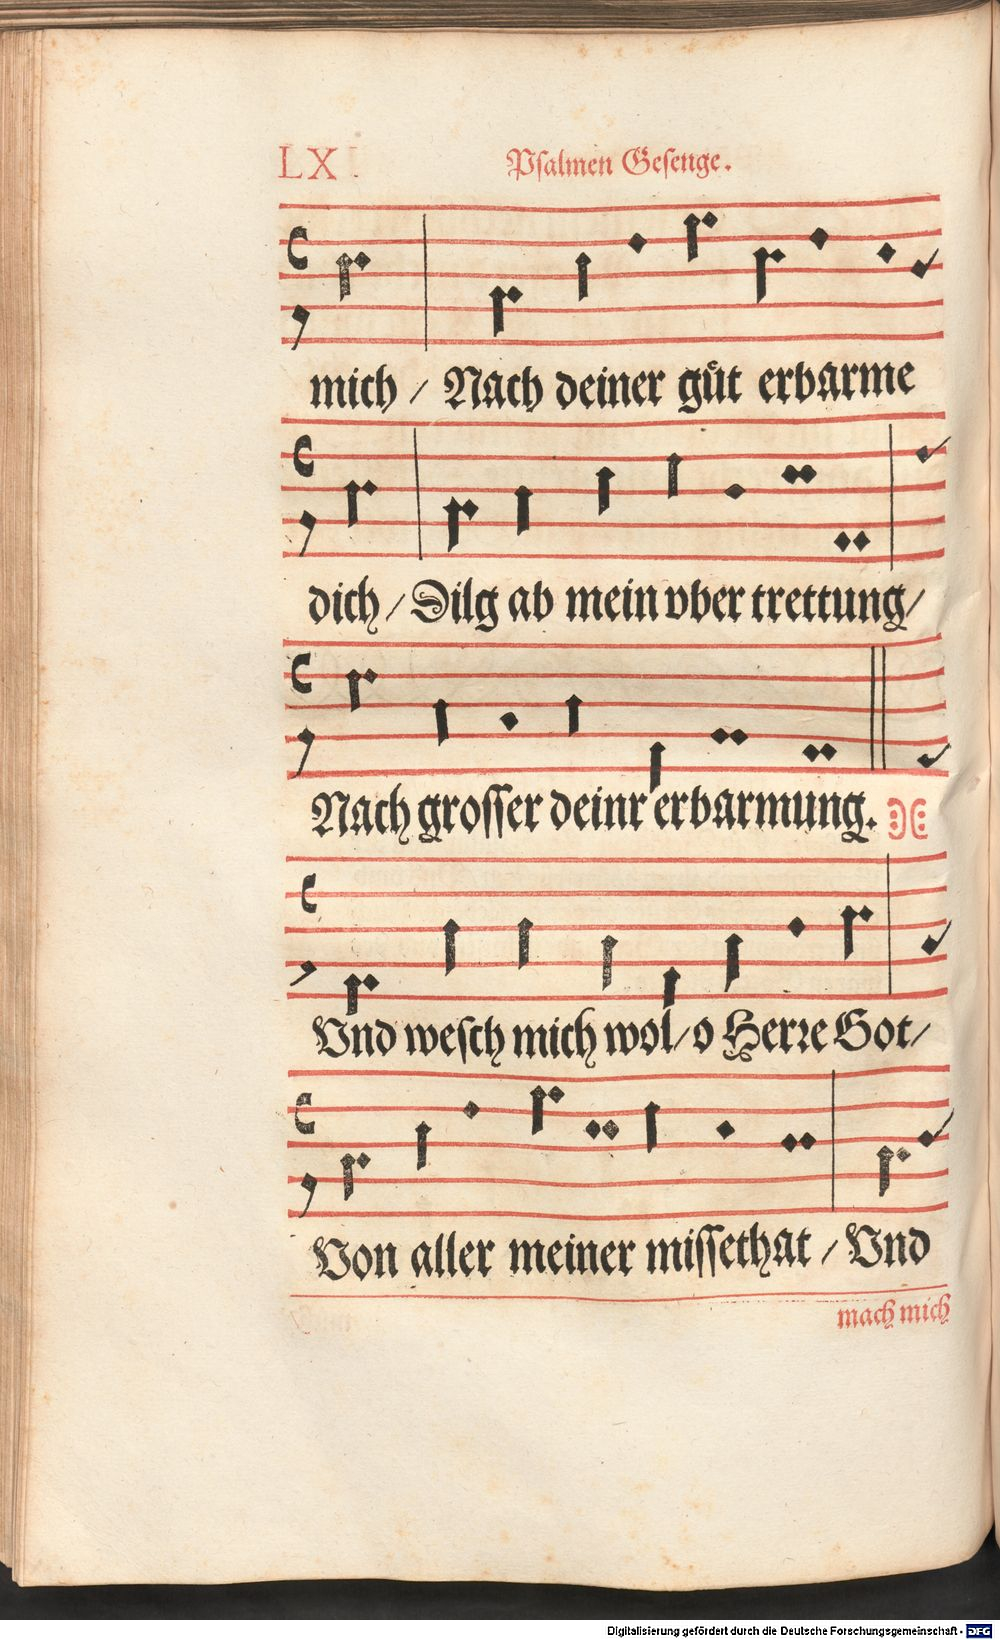 LXI Psalmen Gesenge.
mich / Nach deiner guͤt erbarme
dich / Dilg ab mein vber trettung /
Nach grosser deinr erbarmung.
Vnd wesch mich wol / o Herre Got /
Von aller meiner missethat / Vnd
mach mich
Digitalisierung gefördert durch die Deutsche Forschungsgemeinschaft - DFG